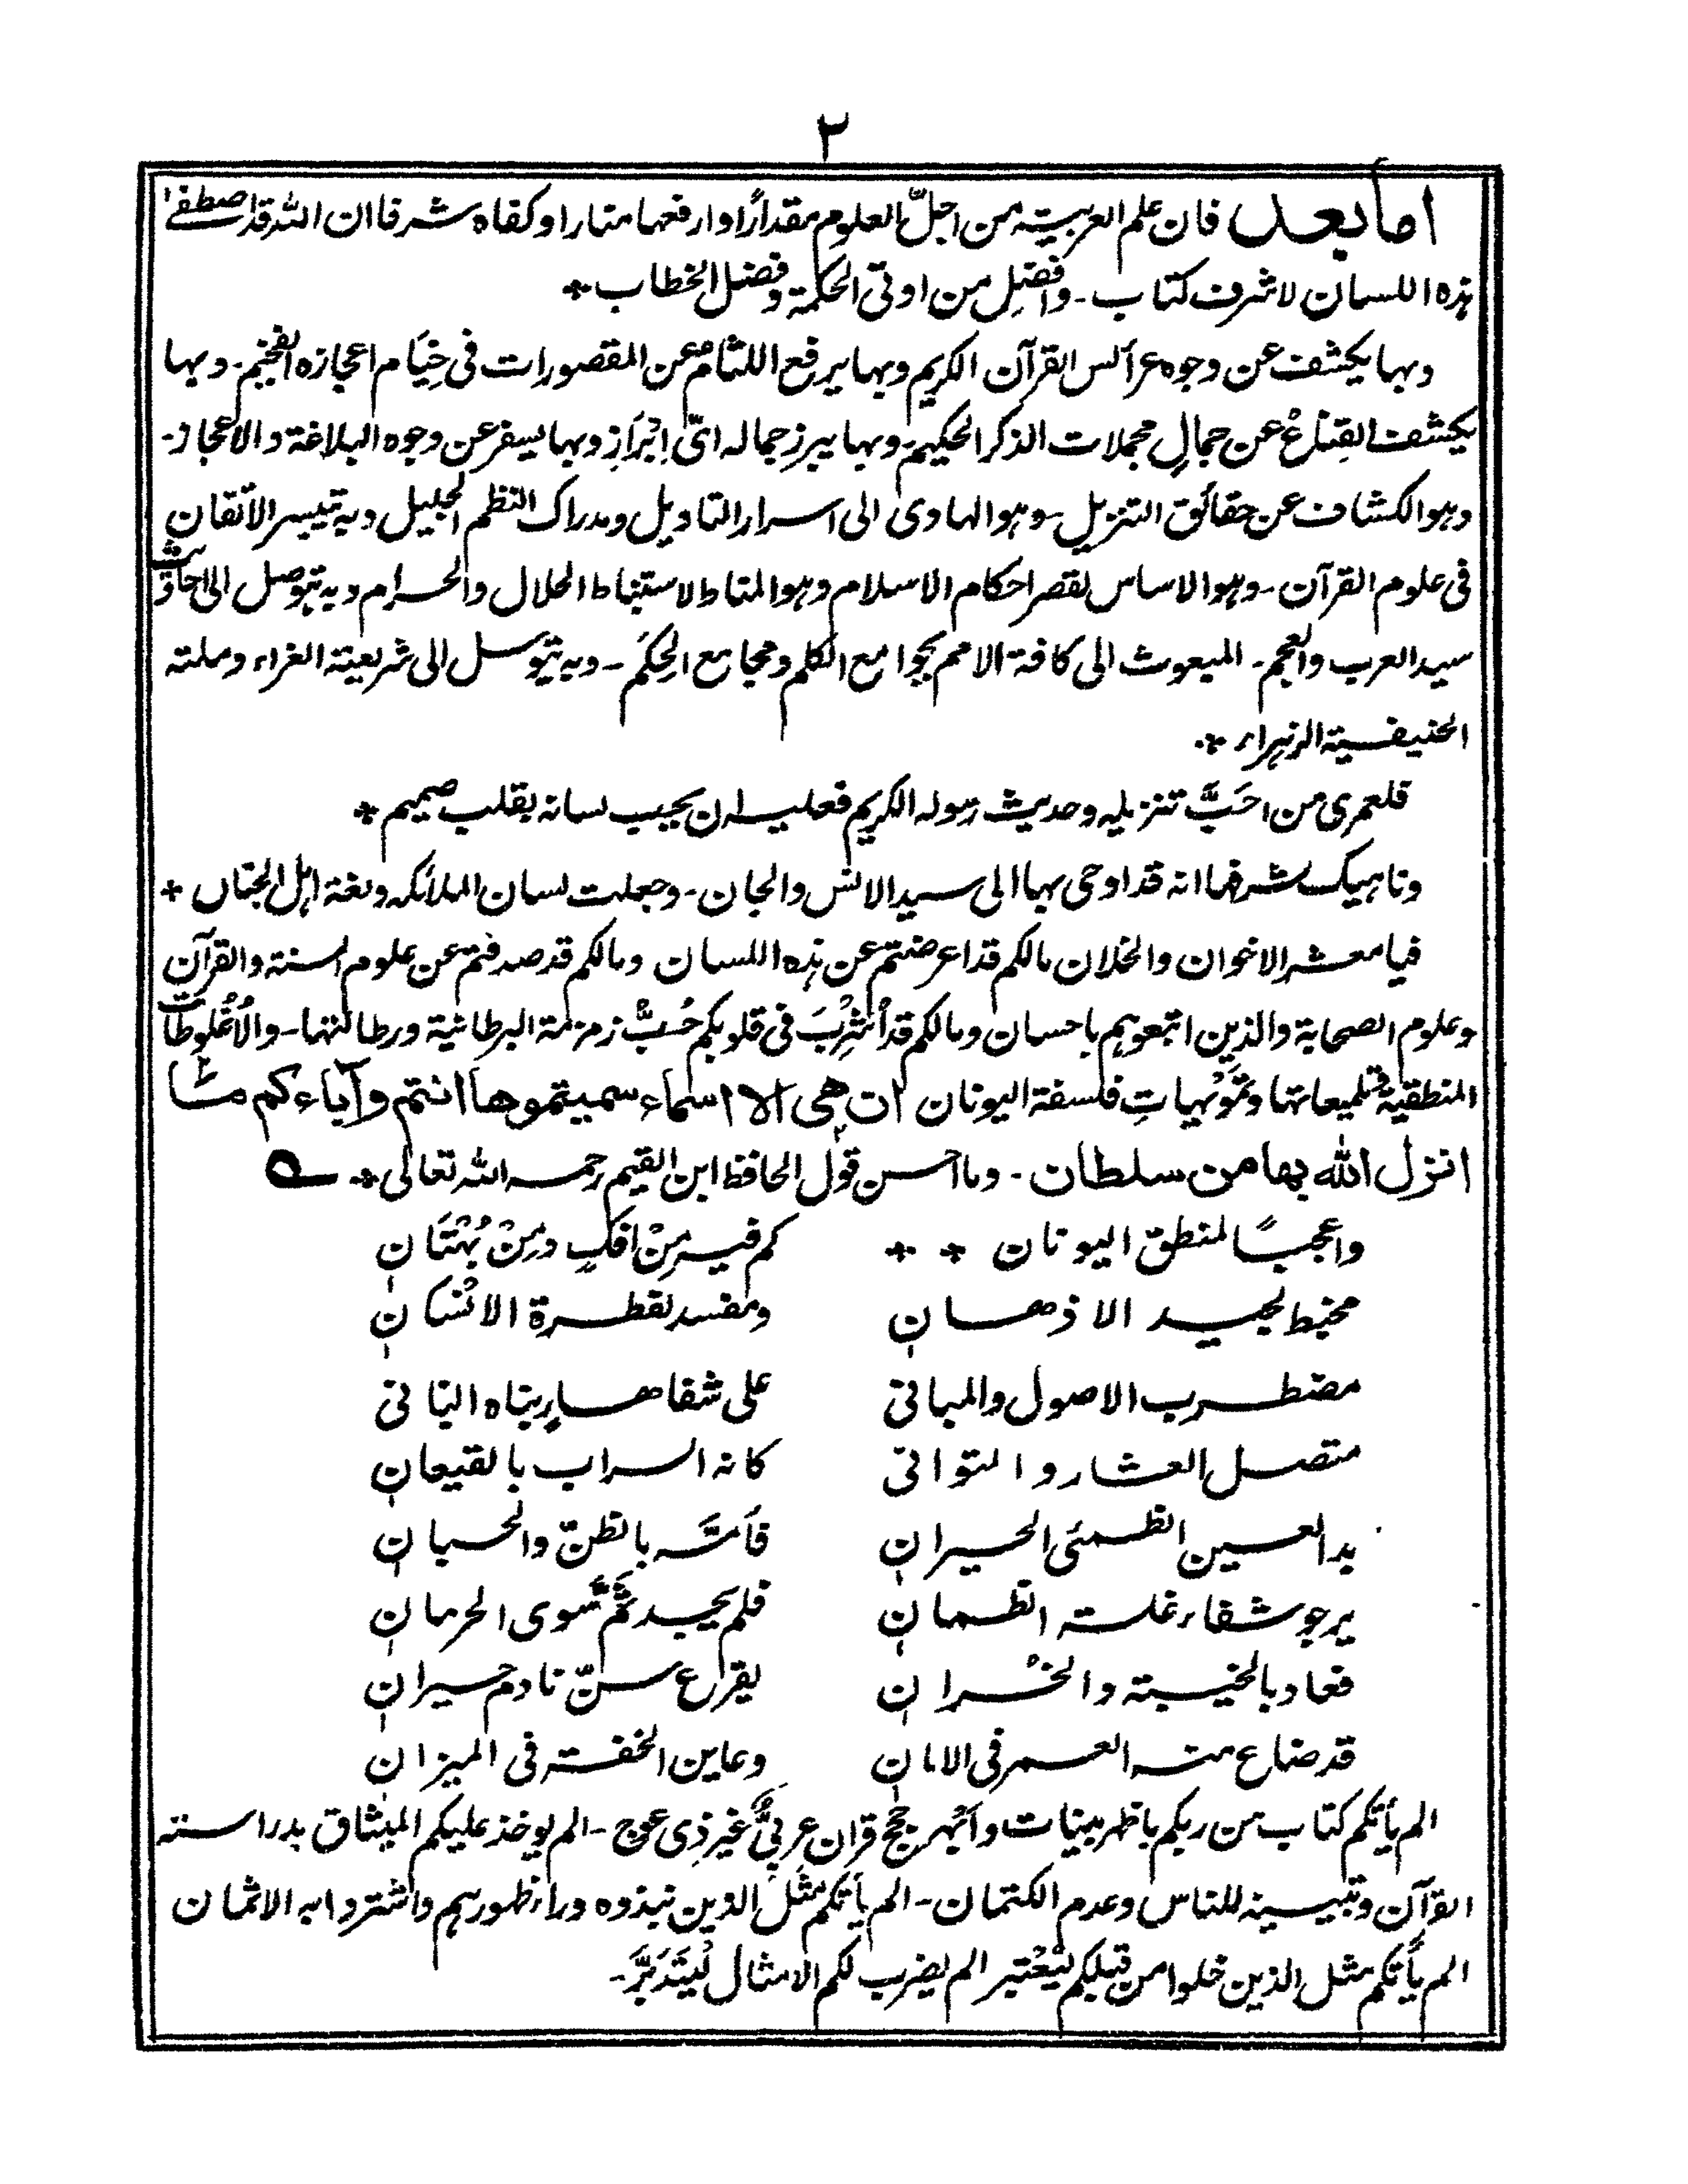 ٢
اما بعد فان علم العربية من اجلّ العلوم مقدارًا وارفعها منارا وكفاه شرفا ان الله قد اصطفے
هذه اللسان لاشرف كتاب - وافضلِ من اوتى الحكمة وفصل الخطاب +
وبها يكشف عن وجوه عرائس القرآن الكريم وبها يرفع اللثام عن المقصورات فى خِيَام اعجازه الفخيم - وبها
يكشف القِناعُ عن جمالِ مجملات الذكر الحكيم - وبها يبرز جماله اىّ اِبْرَازِ وبها يسفر عن وجوه البلاغة والاعجاز -
وهو الكشاف عن حقائق التنزيل - وهو الهادى الى اسرار التاويل ومدراك النظم الجليل وبه تيسر الاتقان
فى علوم القرآن - وهو الاساس لقصر احكام الاسلام وهو المناط لاستنباط الحلال والحرام وبه يتوصل الى احاديث
سيد العرب والعجم - المبعوث الى كافة الامم بجوامع الكلم ومجامع الحِكَم - وبه يتوسل الى شريعته الغراء وملته
الحنيفية الزهراء +
فلعمرى من احَبَّ تنزيله وحديث رسوله الكريم فعليه ان يحب لسانه بقلب صميم +
وناهيك شرفها انه قد اوحى بها الى سيد الانس والجان - وجعلت لسان الملائكه ولغة اهل الجنان +
فيا معشر الاخوان والخلان مالكم قد اعرضتم عن هذه اللسان ومالكم قد صدفتم عن علوم السنة والقرآن
وعلوم الصحابة والذين اتبعوهم باحسان ومالكم قد اُشْرِبَ فى قلوبكم حُبُّ زمزمة البرطانية ورطانتها - والاُغْلُوطات
المنطقية وتلميعاتها وتَمْوِيهاتِ فلسفة اليونان ان هى الا اسماء سميتموها انتم وآباءكم ما
انزل الله بها من سلطان - وما احسن قول الحافظ ابن القيم رحمه الله تعالى +
واعجبًا لمنطق اليونان + + كم فيه مِنْ افكٍ ومِنْ بُهْتَانِ
مخبط لجيد الاذهان ومفسد لفطرة الانْسَانِ
مضطرب الاصول والمبانى على شفا هارٍ بناه البانى
متصل العثار والتوانى كانه السراب بالقيعان
بدا لعين الظمئى الحيران فأمَّه بالظنّ والحسبان
يرجو شفاء غلة الظمان فلم يجد ثَمَّ سوى الحرمان
فعاد بالخيبة والخسْران يقرع سنّ نادم حيران
قد ضاع منه العمر فى الامان وعاين الخفة فى الميزان
الم يأتكم كتاب من ربكم باظهر بينات وابْهر حجج قران عربىٌّ غير ذى عوج - الم يوخذ عليكم الميثاق بدراسته
القرآن وتبيينه للناس وعدم الكتمان - الم يأتكم مَثَلُ الذين نبذوه وراء ظهورهم واشتروا به الاثمان
الم يأتكم مثل الذين خلوا من قبلكم ليُعْتبر الم يضرب لكم الامثال ليُتَدَبَّرَ -